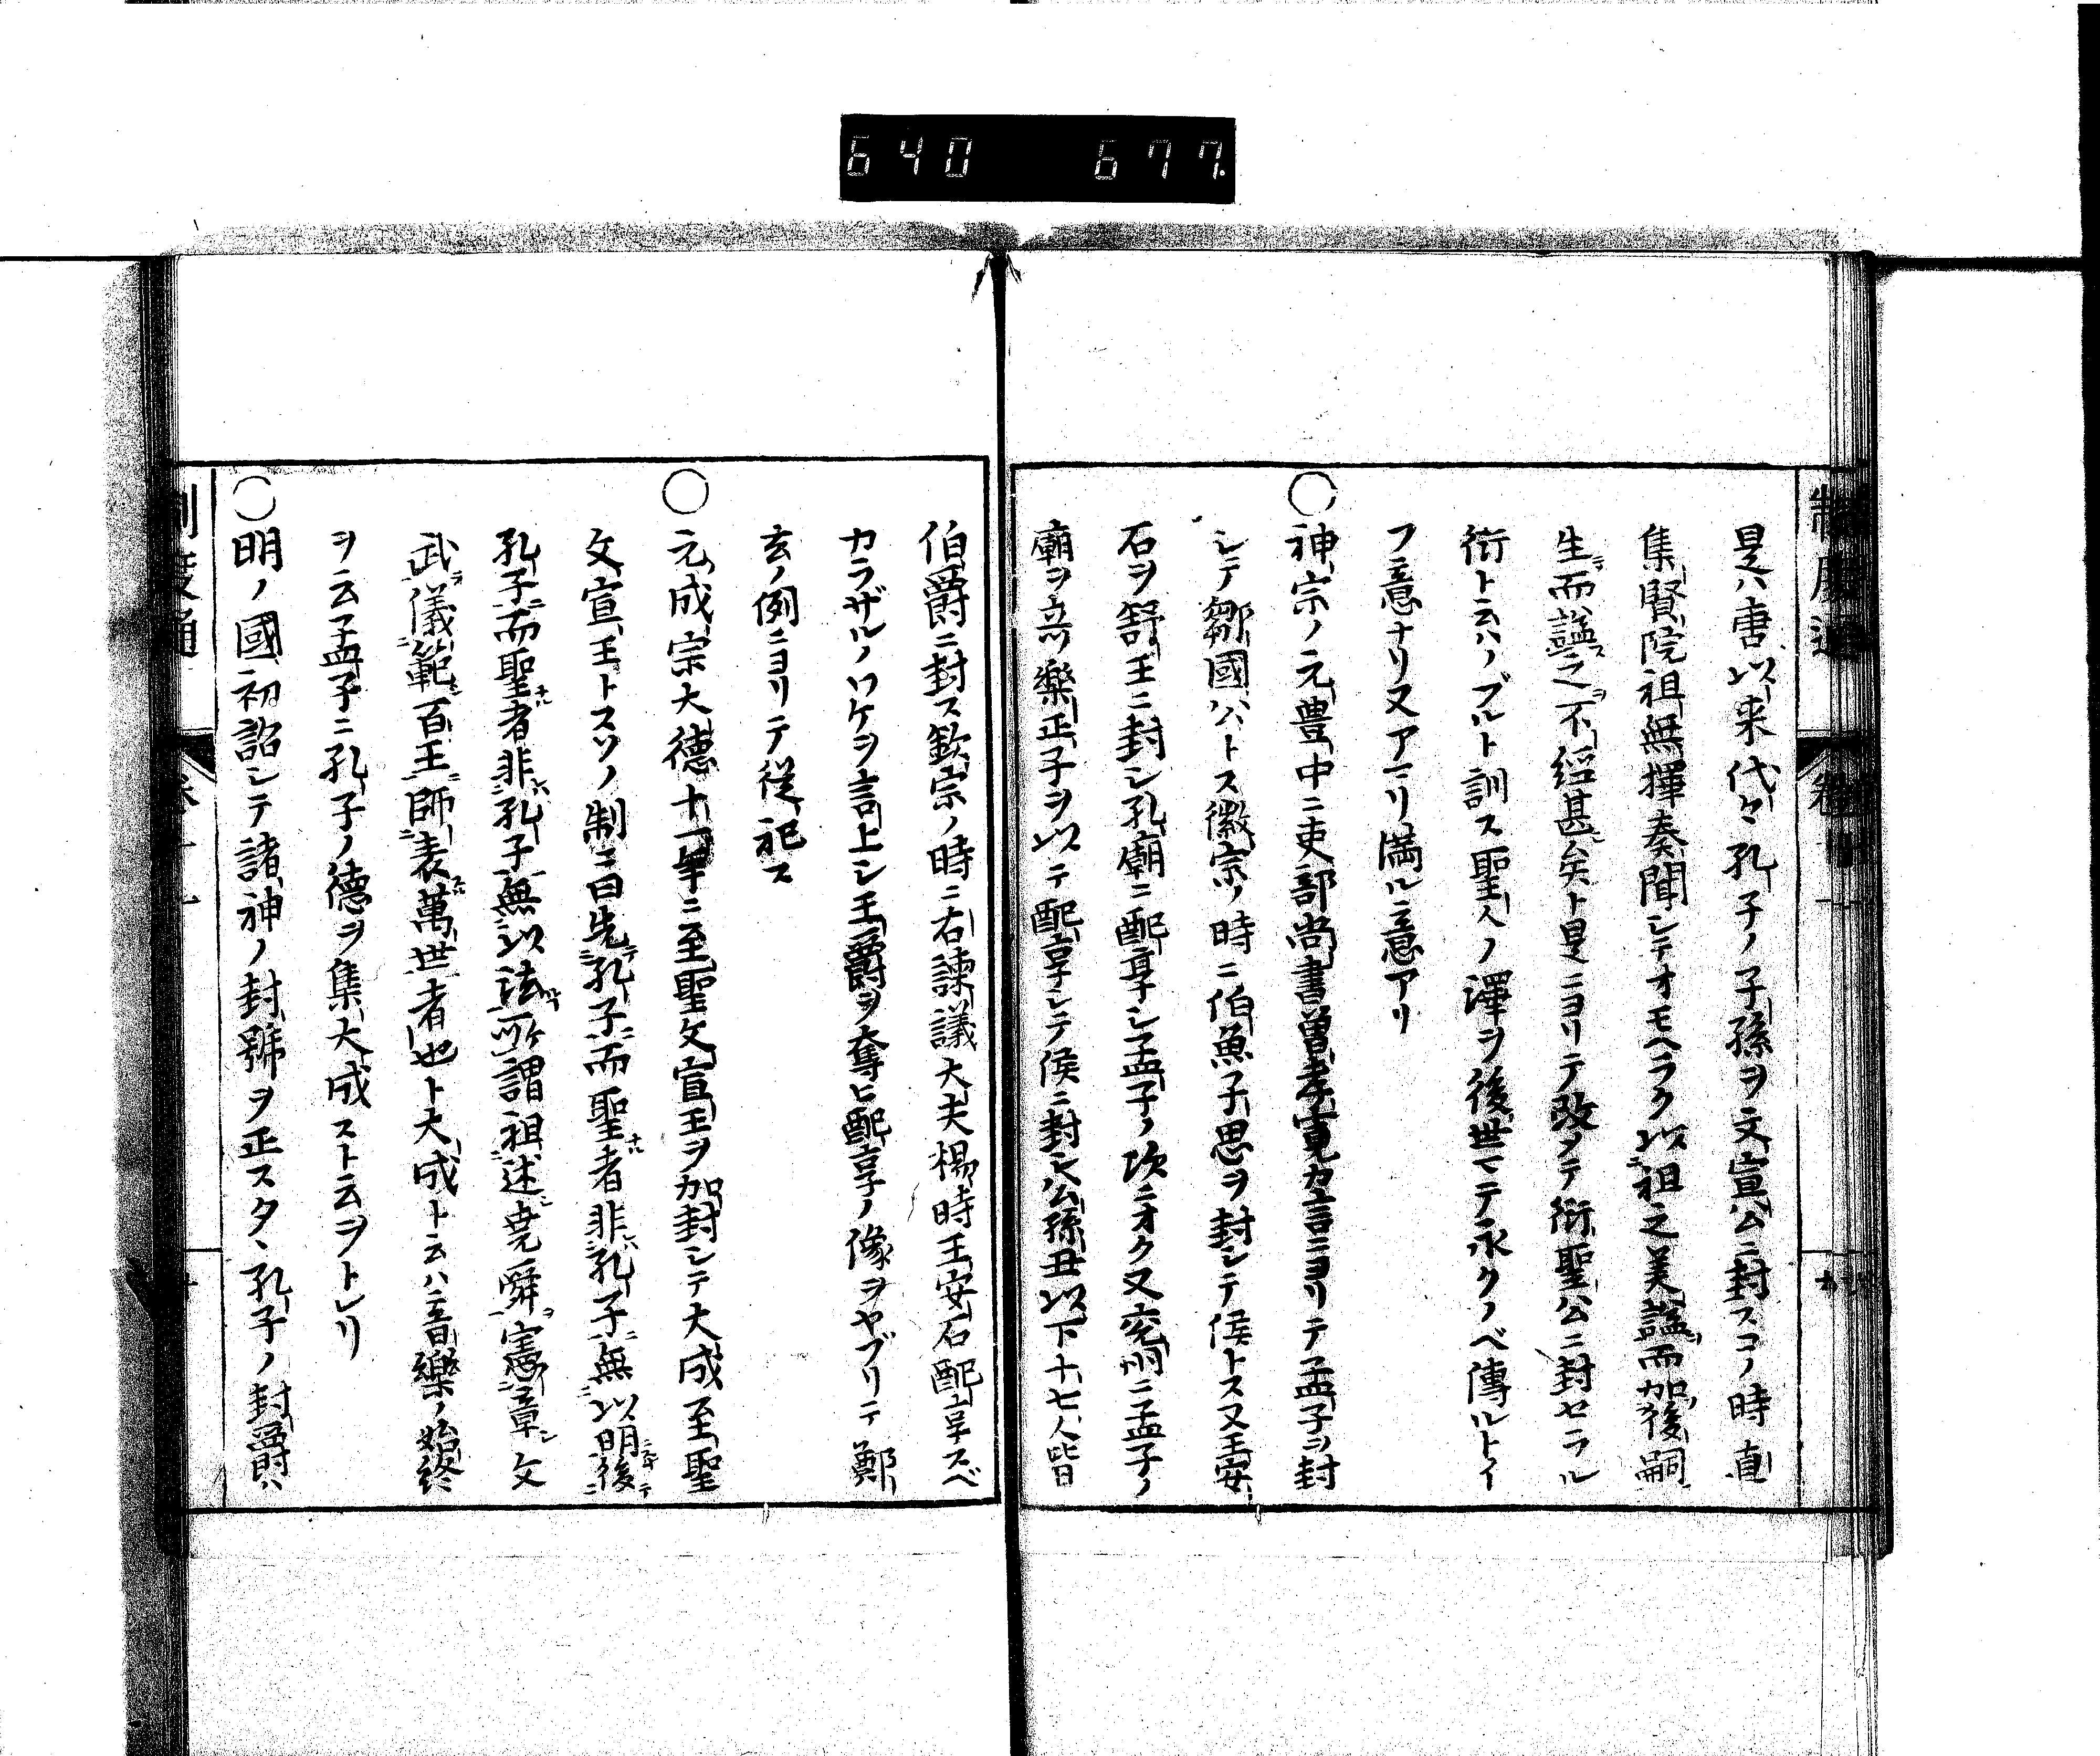 640 677.
制度通
是ハ唐以来代々孔子ノ子孫ヲ文宣公ニ封スコノ時直
集賢院祖無擇奏聞シテオモヘラク以祖之美諡而加後嗣
生而諡之不経甚矣ト是ニヨリテ改メテ衍聖公ニ封セラル
衍ト云ハノブルト訓ス聖人ノ澤ヲ後世マテ永クノベ傳ルトイ
フ意ナリ又アマリ満ル意アリ
〇神宗ノ元豊中ニ吏部尚書曽孝寛カ言ニヨリテ孟子ヲ封
シテ鄒國公トス徽宗ノ時ニ伯魚子思ヲ封シテ侯トス又王安
石ヲ舒王ニ封シ孔廟ニ配享シ孟子ノ次ニオク又兖州ニ孟子ノ
廟ヲ立ツ樂正子ヲ以テ配享シテ侯ニ封シ公孫丑以下十七人皆
伯爵ニ封ス欽宗ノ時ニ右諫議大夫楊時王安石配享スベ
カラザルノワケヲ言上シ王爵ヲ奪ヒ配享ノ像ヲヤブリテ鄭
玄ノ例ニヨリテ從祀ス
〇元成宗大德十一年ニ至聖文宣王ヲ加封シテ大成至聖
文宣王トスソノ制ニ曰先孔子而聖者非孔子無以明後
孔子而聖者非孔子無以法所謂祖述尭舜憲章文
武儀範百王師表萬世者也ト大成トハ音樂ノ始終
ヲ云孟子ニ孔子ノ德ヲ集大成ストニ云ヲトレリ
〇明ノ國初詔シテ諸神ノ封號ヲ正スタヽ孔子ノ封爵ハ
制度通